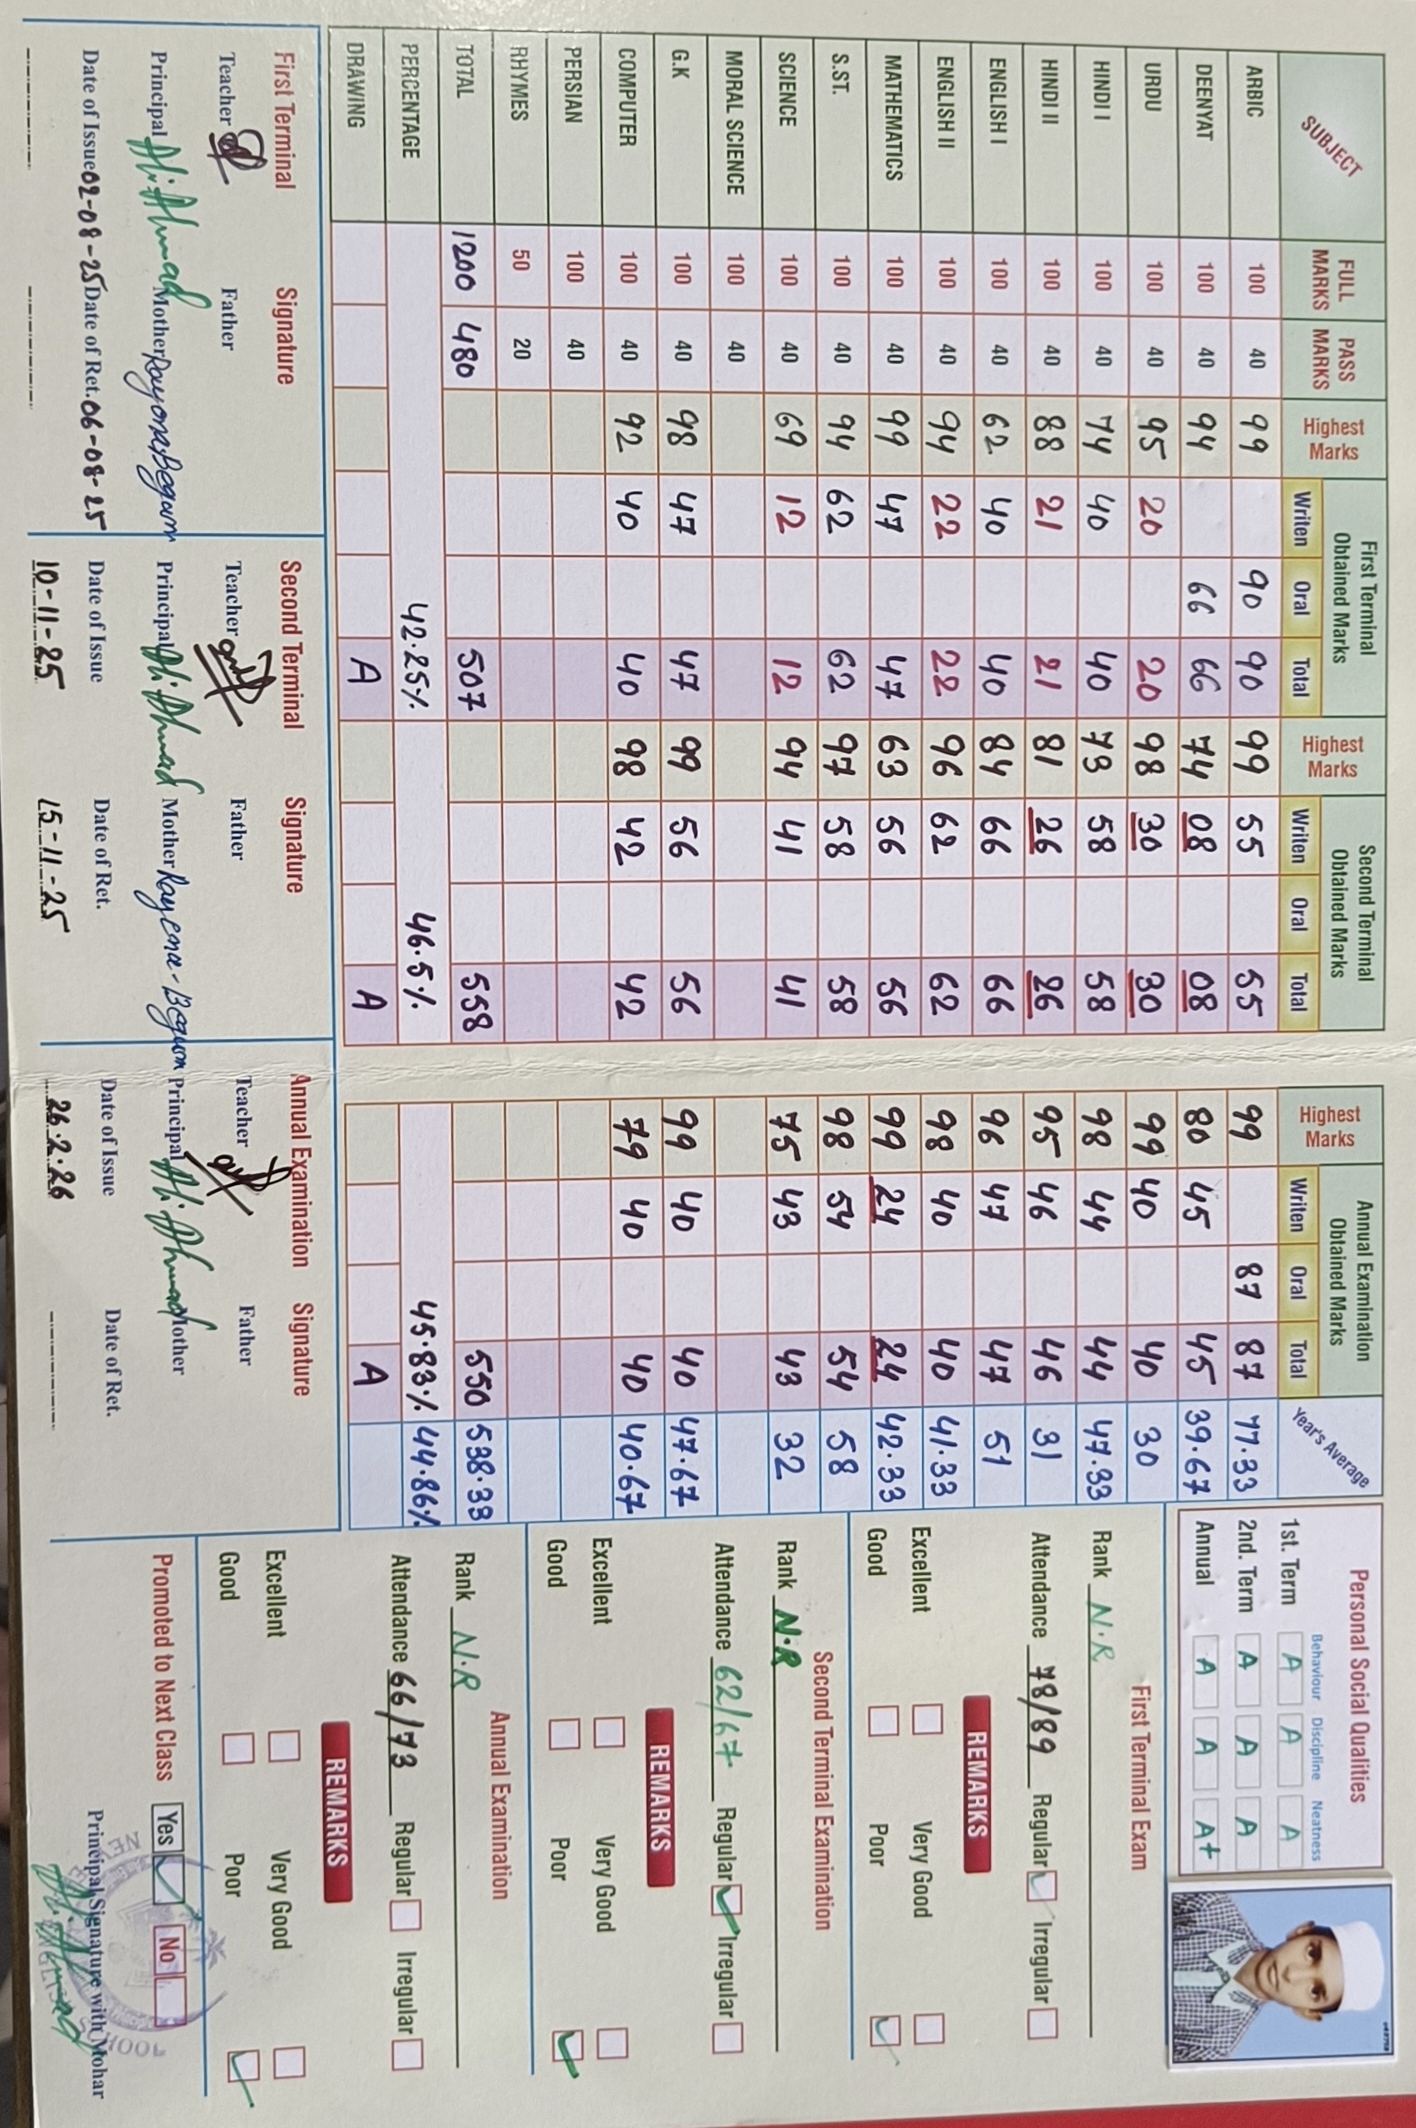 SUBJECT FULL MARKS PASS MARKS Highest Marks First Terminal Obtained Marks Writen Oral Total Highest Marks Second Terminal Obtained Marks Writen Oral Total Highest Marks Annual Examination Obtained Marks Writen Oral Total Year's Average
ARBIC 100 40 99 90 90 99 55 55 99 87 87 77.33
DEENYAT 100 40 94 66 66 74 08 08 80 45 45 39.67
URDU 100 40 95 20 20 98 30 30 99 40 40 30
HINDI I 100 40 74 40 40 73 58 58 98 44 44 47.33
HINDI II 100 40 88 21 21 81 26 26 95 46 46 31
ENGLISH I 100 40 62 40 40 84 66 66 96 47 47 51
ENGLISH II 100 40 94 22 22 96 62 62 98 40 40 41.33
MATHEMATICS 100 40 99 47 47 63 56 56 99 24 24 42.33
S.ST. 100 40 94 62 62 97 58 58 98 54 54 58
SCIENCE 100 40 69 12 12 94 41 41 75 43 43 32
MORAL SCIENCE 100 40
G.K 100 40 98 47 47 99 56 56 99 40 40 47.67
COMPUTER 100 40 92 40 40 98 42 42 79 40 40 40.67
PERSIAN 100 40
RHYMES 50 20
TOTAL 1200 480 507 558 550 538.33
PERCENTAGE 42.25% 46.5% 45.83% 44.86%
DRAWING A A A
First Terminal Signature
Teacher Father
Principal Ali Ahmad Mother Rayona Begam
Date of Issue 02-08-25 Date of Ret. 06-08-25
Second Terminal Signature
Teacher Father
Principal Ali Ahmad Mother Rayena-Begum
Date of Issue Date of Ret.
10-11-25 15-11-25
Annual Examination Signature
Teacher Father
Principal Ali Ahmad Mother
Date of Issue Date of Ret.
26.2.26
Personal Social Qualities
Behaviour Discipline Neatness
1st. Term A A A
2nd. Term A A A
Annual A A A+
First Terminal Exam
Rank N.R
Attendance 78/89 Regular Irregular
REMARKS
Excellent Very Good
Good Poor
Second Terminal Examination
Rank N.R
Attendance 62/67 Regular Irregular
REMARKS
Excellent Very Good
Good Poor
Annual Examination
Rank N.R
Attendance 66/73 Regular Irregular
REMARKS
Excellent Very Good
Good Poor
Promoted to Next Class Yes No
Principal Signature with Mohar
Ali Ahmad